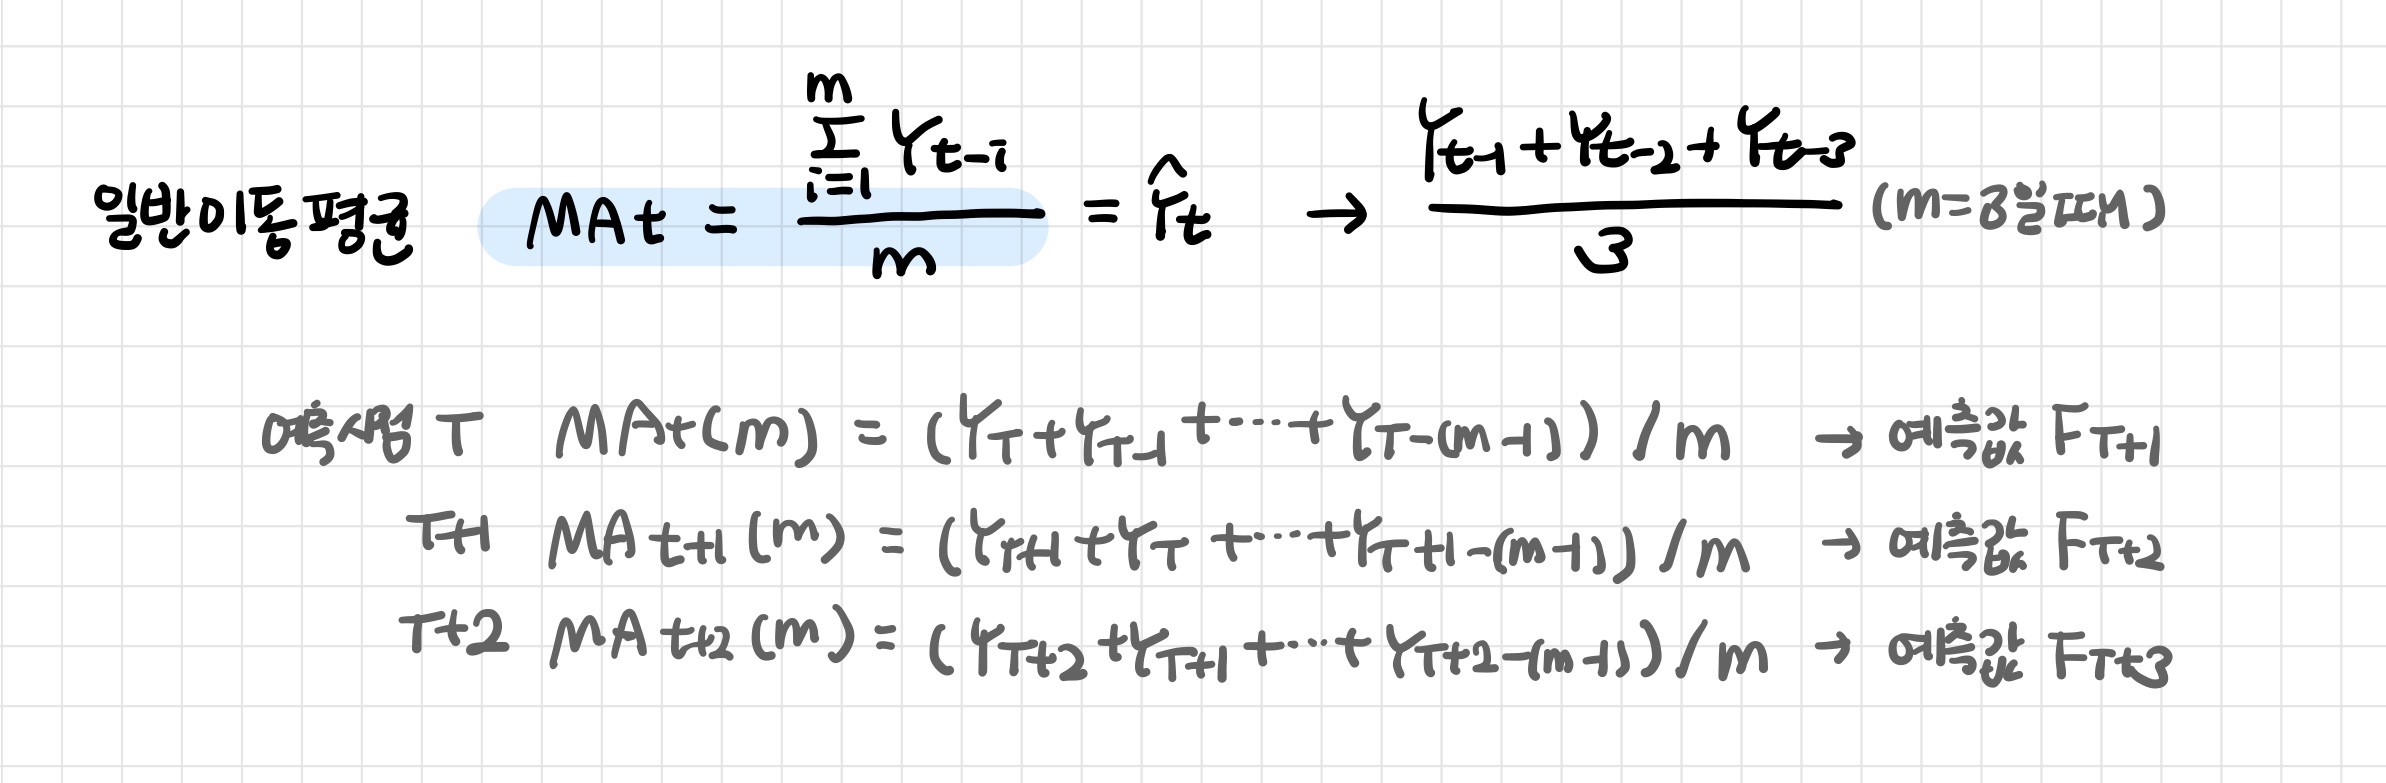 일반이동평균 MAt = \frac{\sum_{i=1}^{m} Y_{t-i}}{m} = \hat{Y}_t → \frac{Y_{t-1} + Y_{t-2} + Y_{t-3}}{3} (m=3일때)
예측시점 T MA_t(m) = (Y_T + Y_{T-1} + ··· + Y_{T-(m-1)}) / m → 예측값 F_{T+1}
T+1 MA_{t+1}(m) = (Y_{T+1} + Y_T + ··· + Y_{T+1-(m-1)}) / m → 예측값 F_{T+2}
T+2 MA_{t+2}(m) = (Y_{T+2} + Y_{T+1} + ··· + Y_{T+2-(m-1)}) / m → 예측값 F_{T+3}